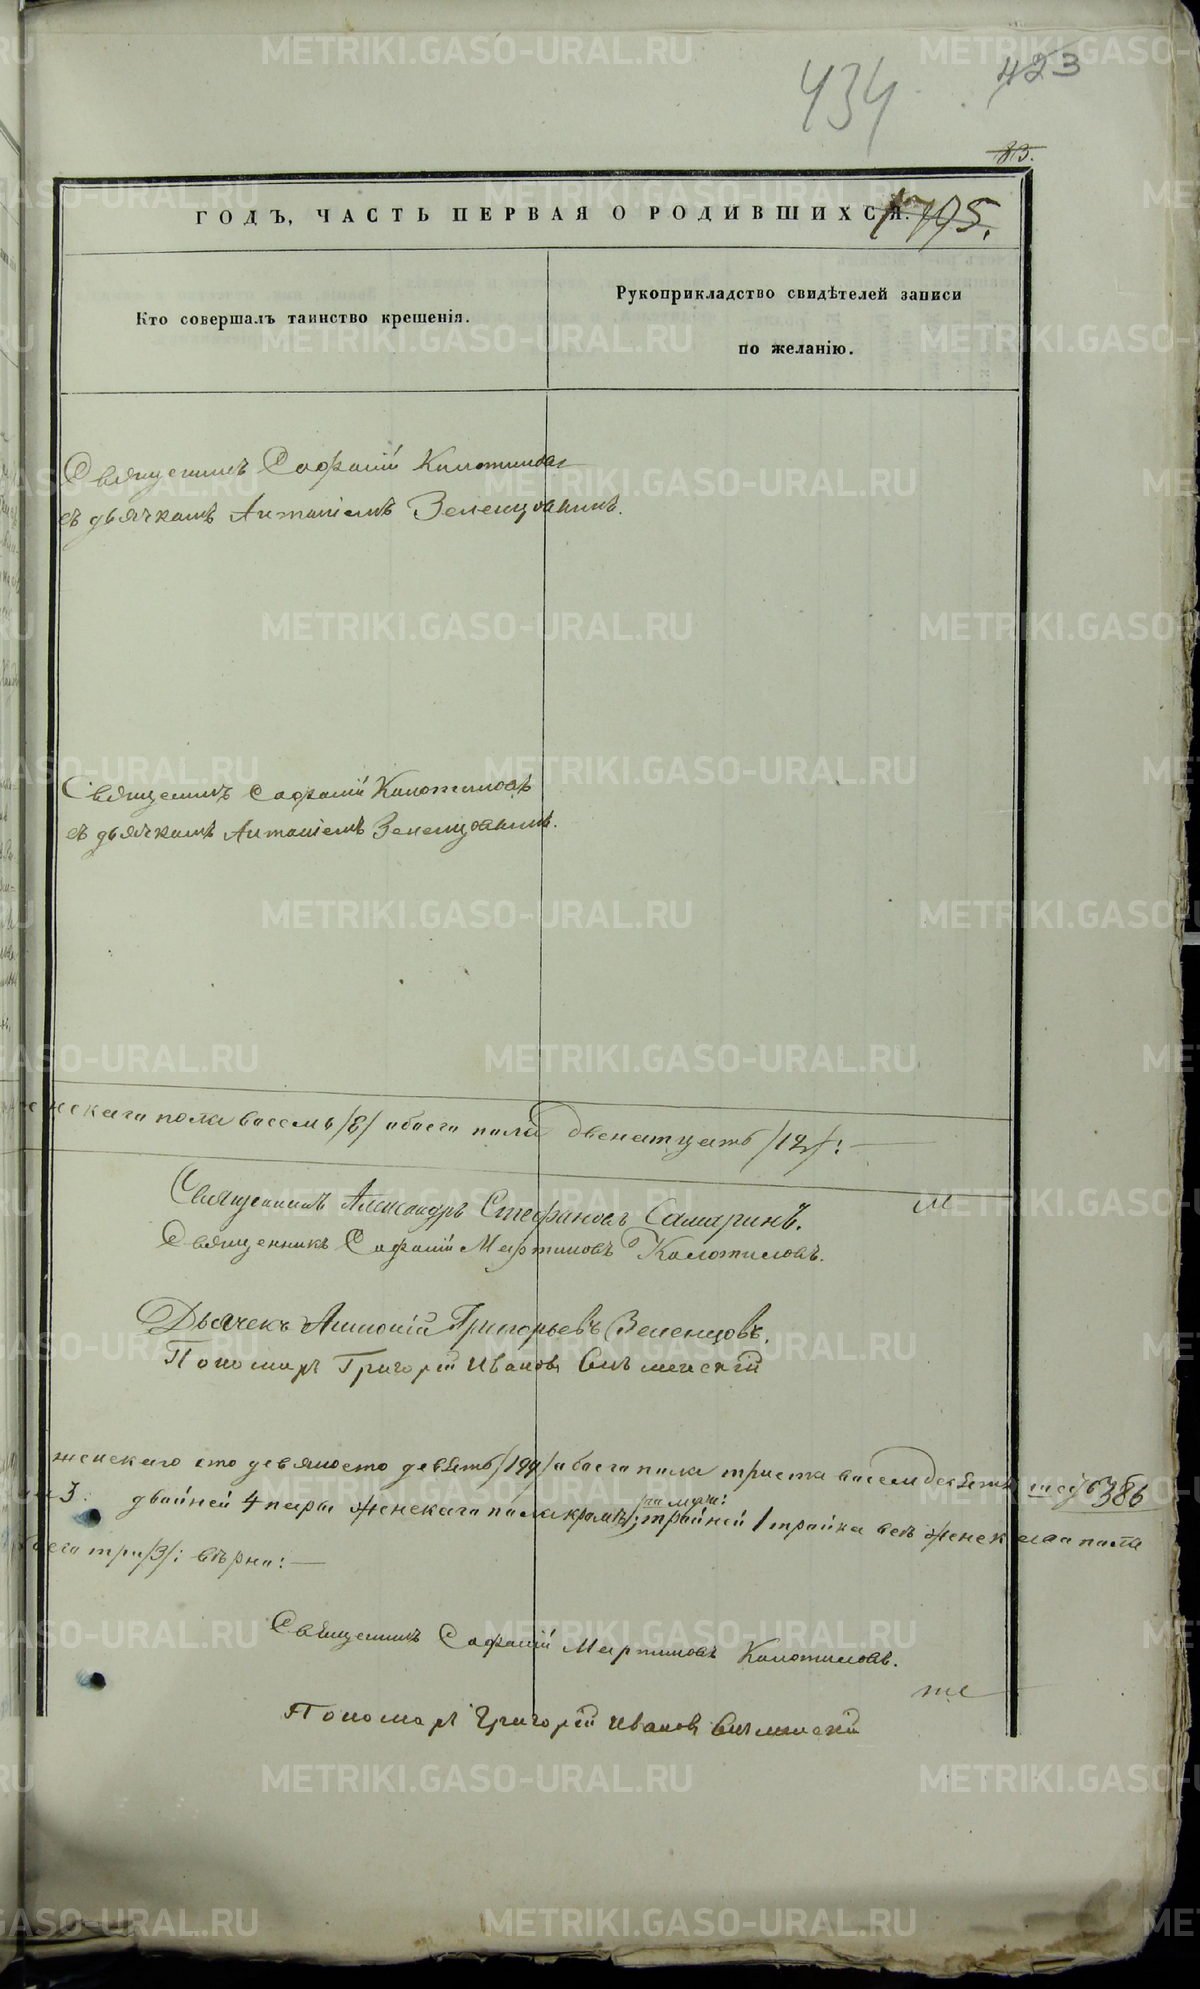 434
423
83.
ГОДЪ, ЧАСТЬ ПЕРВАЯ О РОДИВШИХСЯ.
195.
Кто совершалъ таинство крещенія.
Рукоприкладство свидѣтелей записи
по желанію.
Священникъ Софоній Колотиловъ
съ дьячкомъ Антоніемъ Зеленцовымъ.
Священникъ Софоній Колотиловъ
съ дьячкомъ Антоніемъ Зеленцовымъ.
женскаго пола восемь /8/ обоего пола двенатцать /12/:
Священникъ Александръ Стефановъ Самаринъ.
Священникъ Софоній Мартиновъ Колотиловъ.
Дьячекъ Антоній Григорьевъ Зеленцовъ.
Пономарь Григорій Ивановъ
женскаго сто девяносто девять /199/ обоего пола триста восемдесятъ шесть 386
3. двойней 4 пары женскаго пола тройней 1 тройка всѣ женскаго пола
три /3/: вѣрно:
Священникъ Софоній Мартиновъ Колотиловъ.
Пономарь Григорій Ивановъ
METRIKI.GASO-URAL.RU